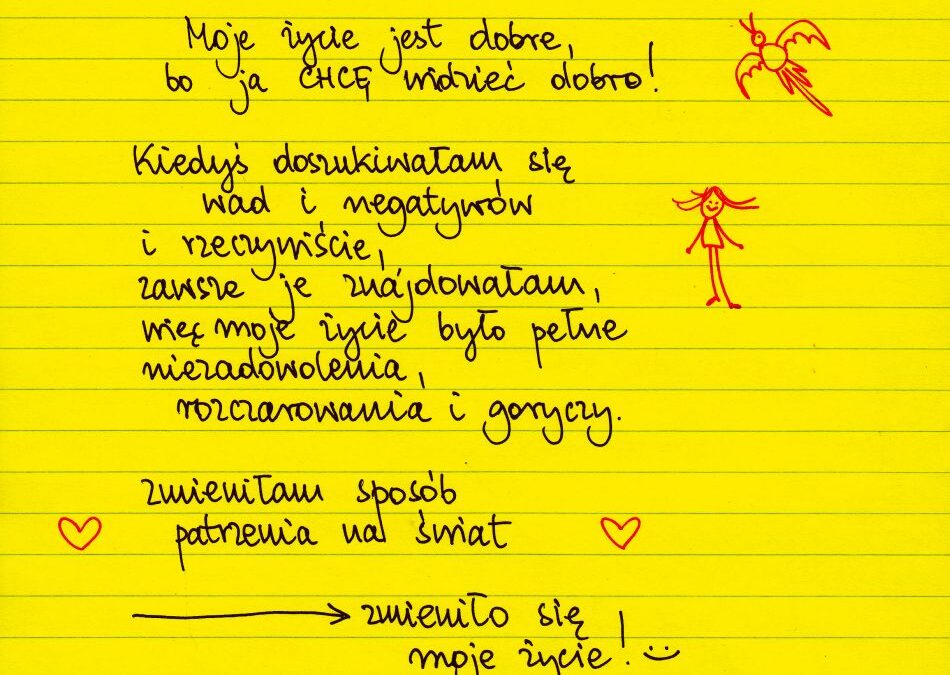 Moje życie jest dobre,
bo ja CHCĘ widzieć dobro!
Kiedyś doszukiwałam się
wad i negatywów
i rzeczywiście,
zawsze je znajdowałam,
więc moje życie było pełne
niezadowolenia,
rozczarowania i goryczy.
zmieniłam sposób
patrzenia na świat
zmieniło się
moje życie!